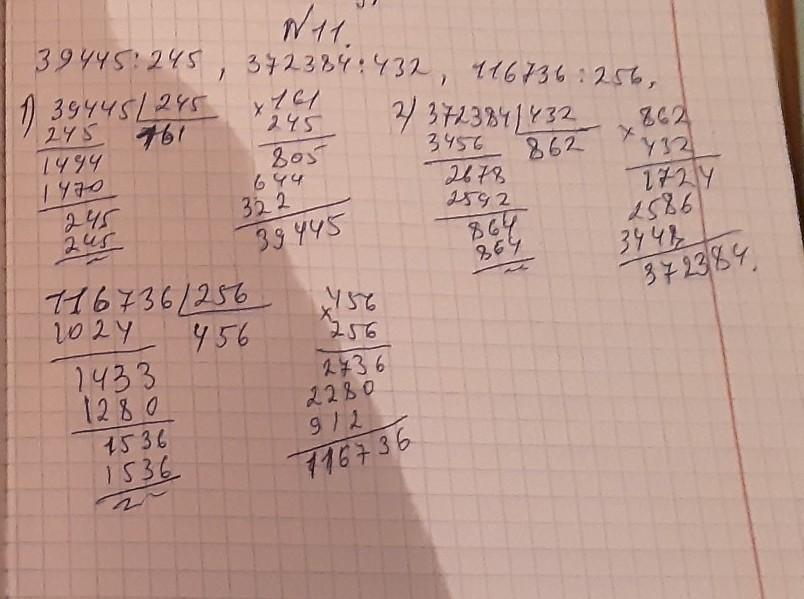 N 11.
39445:245, 372384:432, 116736:256.
1) 39445 245
245 161
1494
1470
245
245
× 161
245
805
644
322
39445
2) 372384 432
3456 862
2678
2592
864
864
× 862
432
1724
2586
3448
372384.
116736 256
1024 456
1433
1280
1536
1536
× 456
256
2736
2280
912
116736